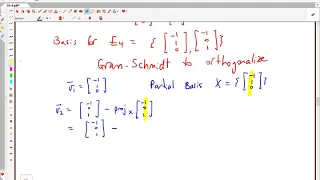 Basis for E₄ = { [-1 1 0], [-1 0 1] }
Gram-Schmidt to orthogonalize
v⃗₁ = [-1 1 0] Partial Basis X = { [-1 1 0] }
v⃗₂ = [-1 0 1] - proj_X [-1 0 1]
= [-1 0 1] -